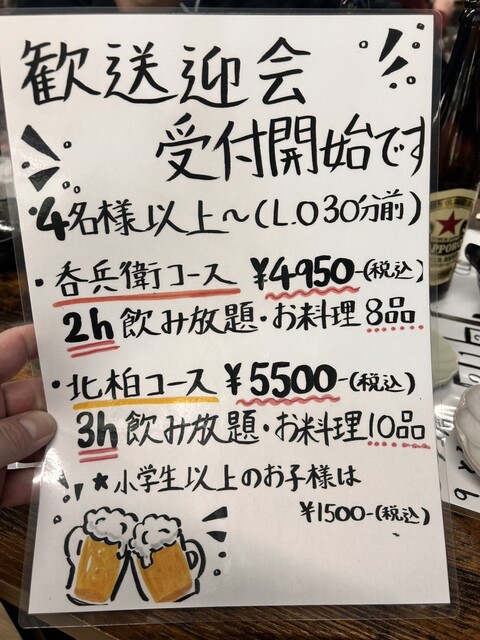 歓送迎会
受付開始です
4名様以上～(L.O 30分前)
・呑兵衛コース ¥4950-(税込)
2h飲み放題・お料理8品
・北柏コース ¥5500-(税込)
3h飲み放題・お料理10品
★小学生以上のお子様は
¥1500-(税込)
SAPPORO